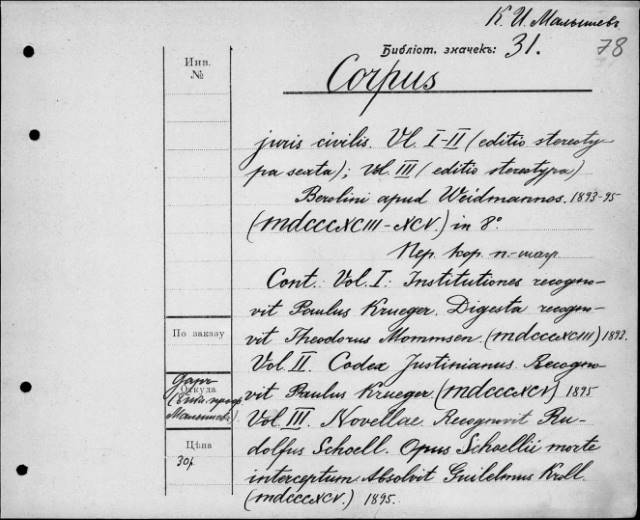 К. И. Малышевъ
Библіот. значекъ: 31.
78
Инв.
№
Corpus
juris civilis. Vl. I-II (editio stereoty-
pa sexta); Vol. III (editio stereotypa)
Berolini apud Weidmannos. 1893-95
(MDCCCXCIII-XCV.) in 8°
Пер. кор. п-шагр.
Cont.: Vol. I: Institutiones recogno-
vit Paulus Krueger. Digesta recogno-
vit Theodorus Mommsen. (MDCCCXCIII) 1893.
Vol. II. Codex Justinianus. Recogno-
vit Paulus Krueger. (MDCCCXCV) 1895
Vol. III. Novellae Recognovit Ru-
dolfus Schoell. Opus Schoellii morte
interceptum Absolvit Guilelmus Kroll.
(MDCCCXCV.) 1895.
По заказу
Откуда
Даръ
Малышева).
Цѣна
30р.